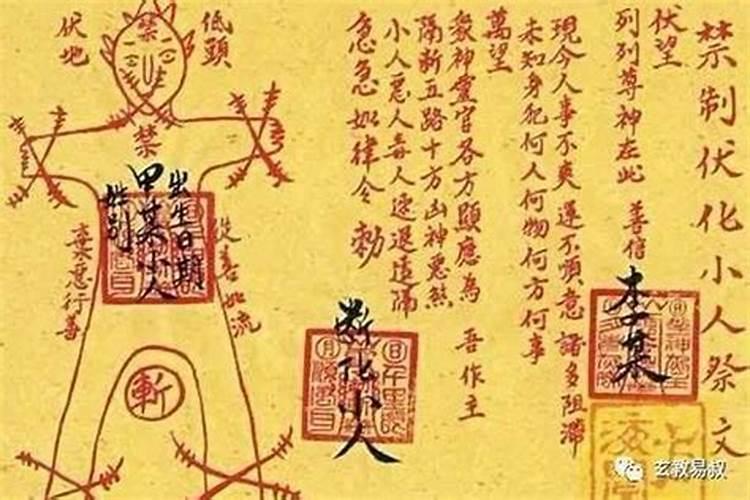 禁制伏化小人祭文
伏望
列列尊神在此 善信
李某
現今人事不爽 運不順意 諸多阻滯
未知身犯何人何物何方何事
萬望
眾神靈官各方顯應為 吾作主
隔斷五路十方凶神惡煞
小人惡人毒人速退遠隔
急急如律令 勅
斷化小人
低頭
伏地
禁
禁
出生日期
甲某小人
姓別
從善如流
棄惡行善
斬
玄教易叔